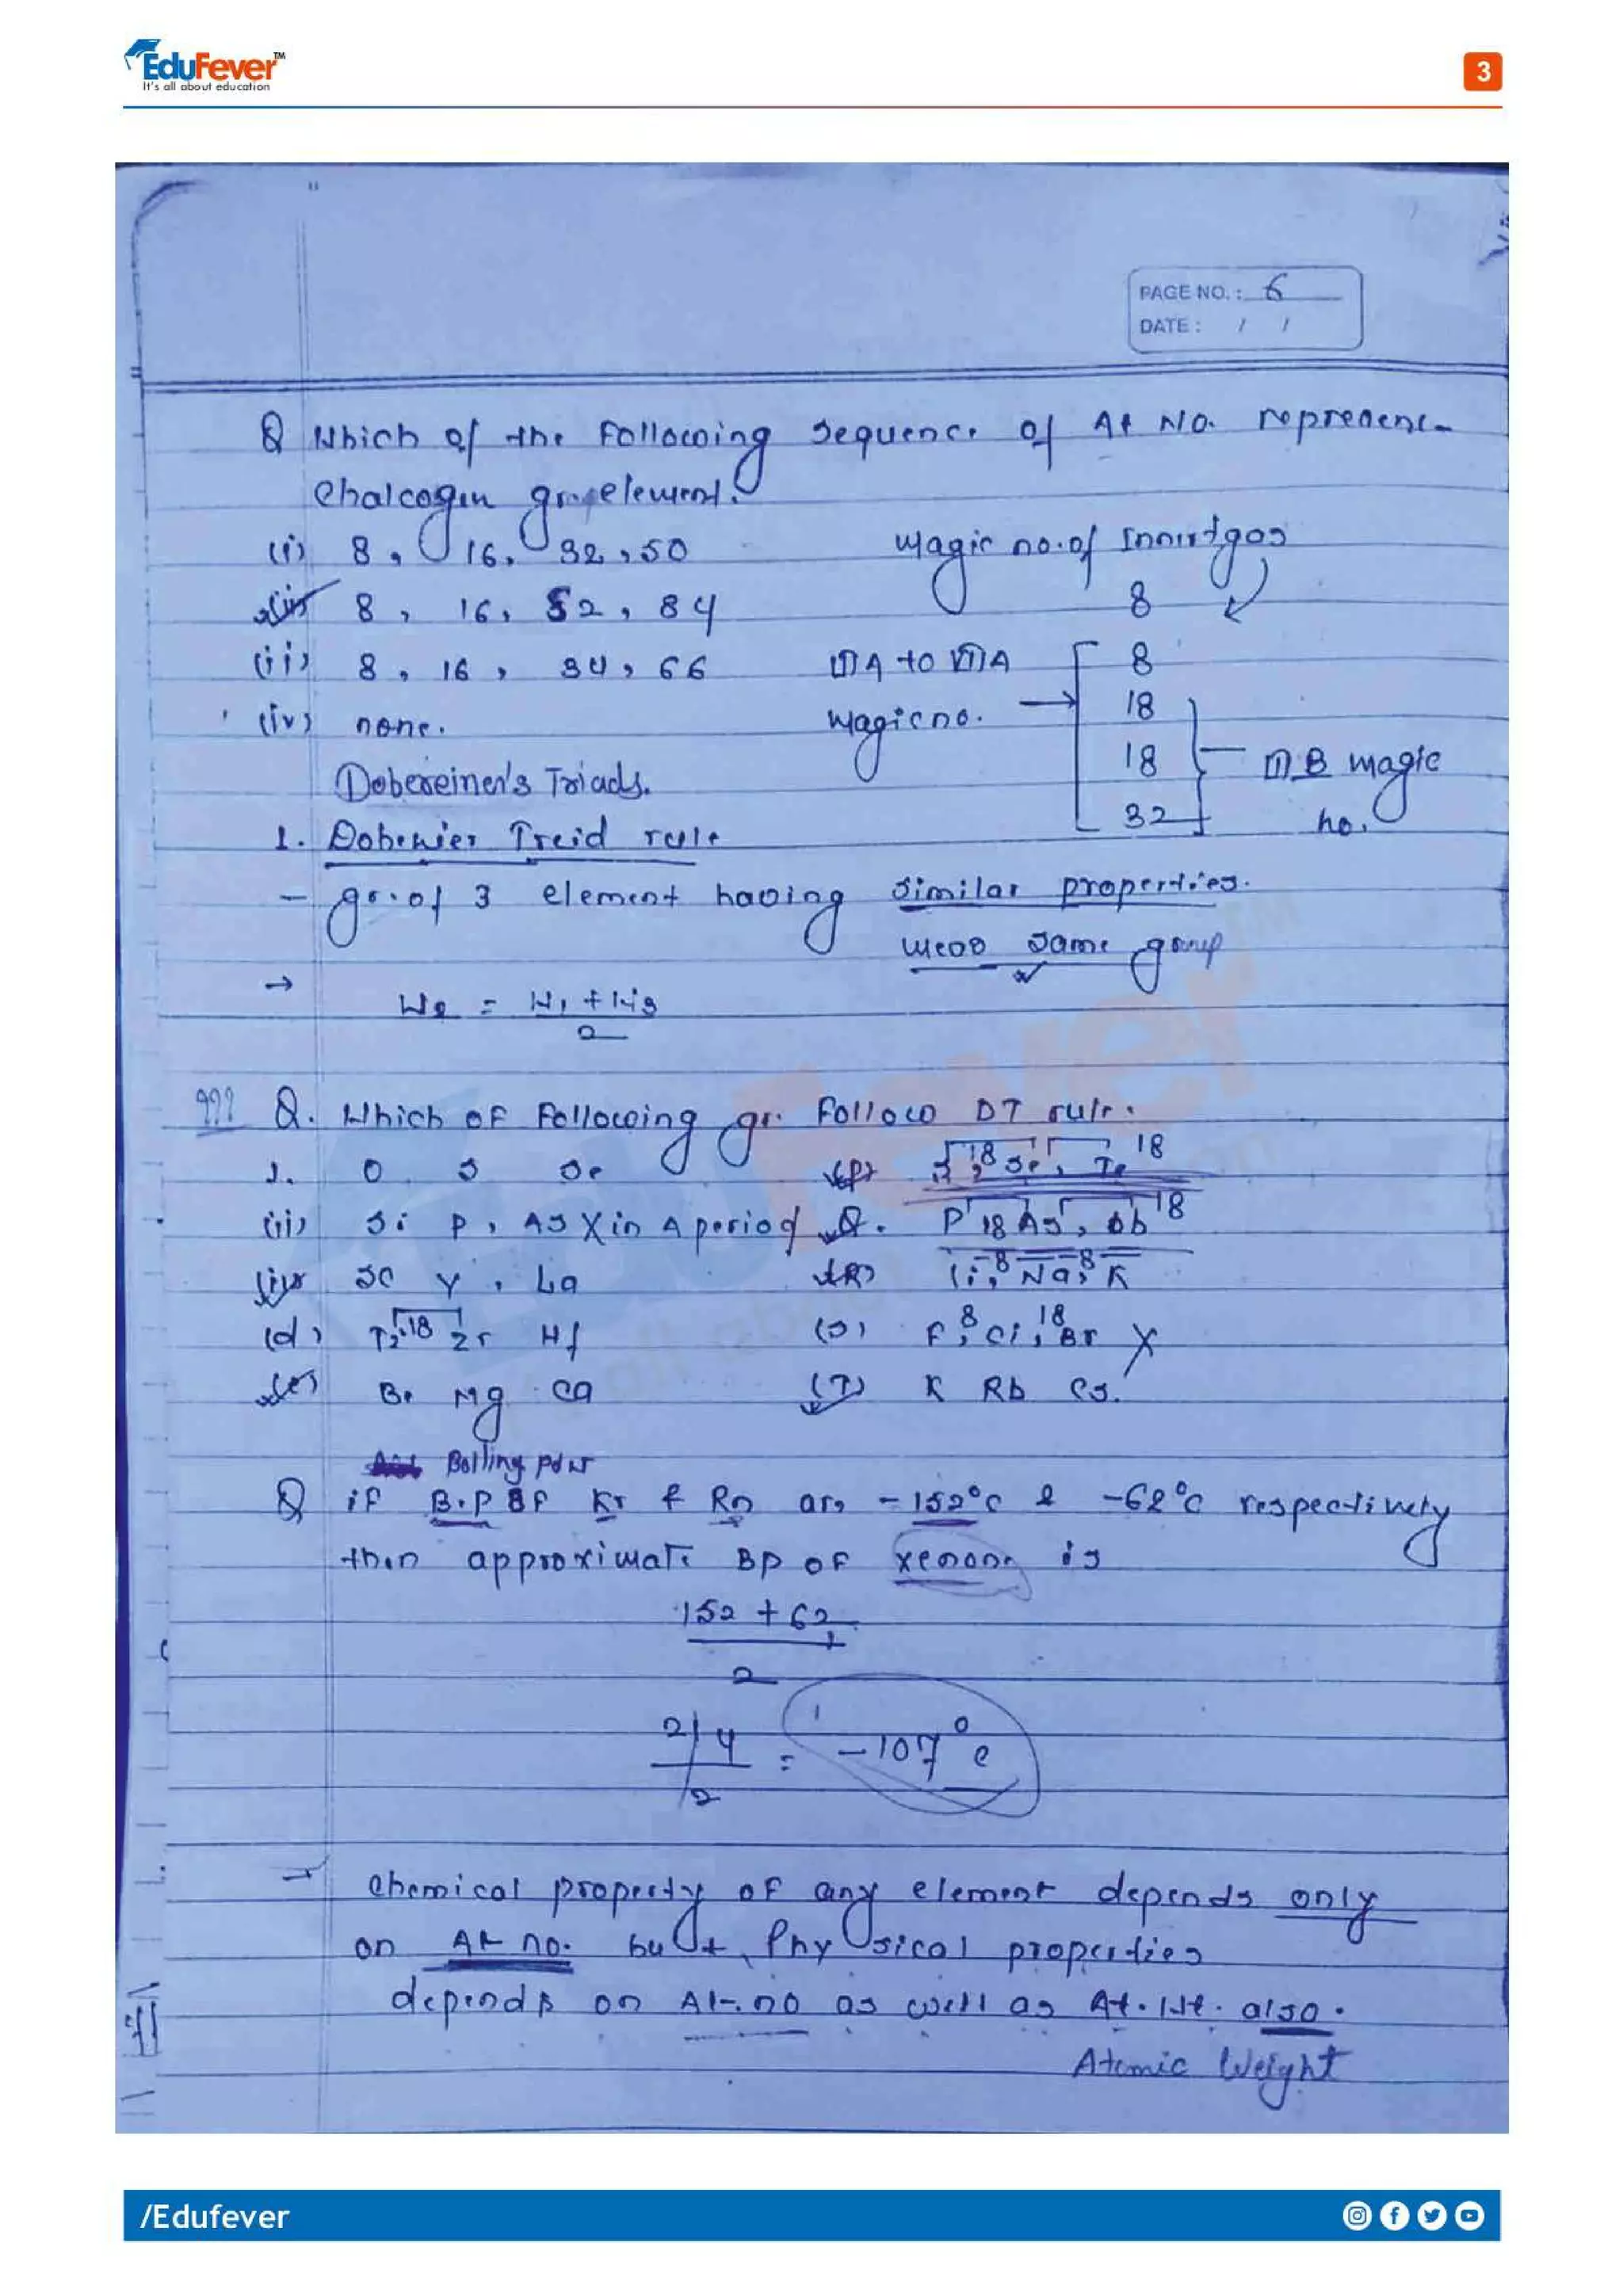 EduFever™
It's all about education
3
PAGE NO.: 6
DATE: / /
Q Which of the Following Sequence of At No. represent
Chalcogen group element.
(i) 8, 16, 32, 50
(ii) 8, 16, 52, 84
(iii) 8, 16, 34, 66
(iv) none.
Magic no. of Innirt gas
8
8
18
18
32
IIIA to VIIA
Magic no. →
III B magic
no.
Dobereiner's Triads.
1. Dobenier Treid rule
– gr. of 3 element having similar properties.
means same group
→ W2 = W1 + W3
2
Q. Which of Following gr. Follow DT rule.
1. O S Se
(ii) Si P, As X in A period
(iv) Sc Y, La
(d) Ti 18 Zr Hf
(e) Be Mg Ca
(P) S, 18 Se, Te 18
Q. P 18 As, Sb 18
(R) Li, 8 Na, 8 K
(S) F, 8 Cl, 18 Br X
(T) K Rb Cs.
Boiling Point
Q if B.P of Kr & Rn are -152°C & -62°C respectively
then approximate BP of xenon is
152 + 62
2
214
2
= -107°C
→ Chemical property of any element depends only
on At no. but Physical properties
depends on At. no as well as At. Wt. also.
Atomic Weight
/Edufever